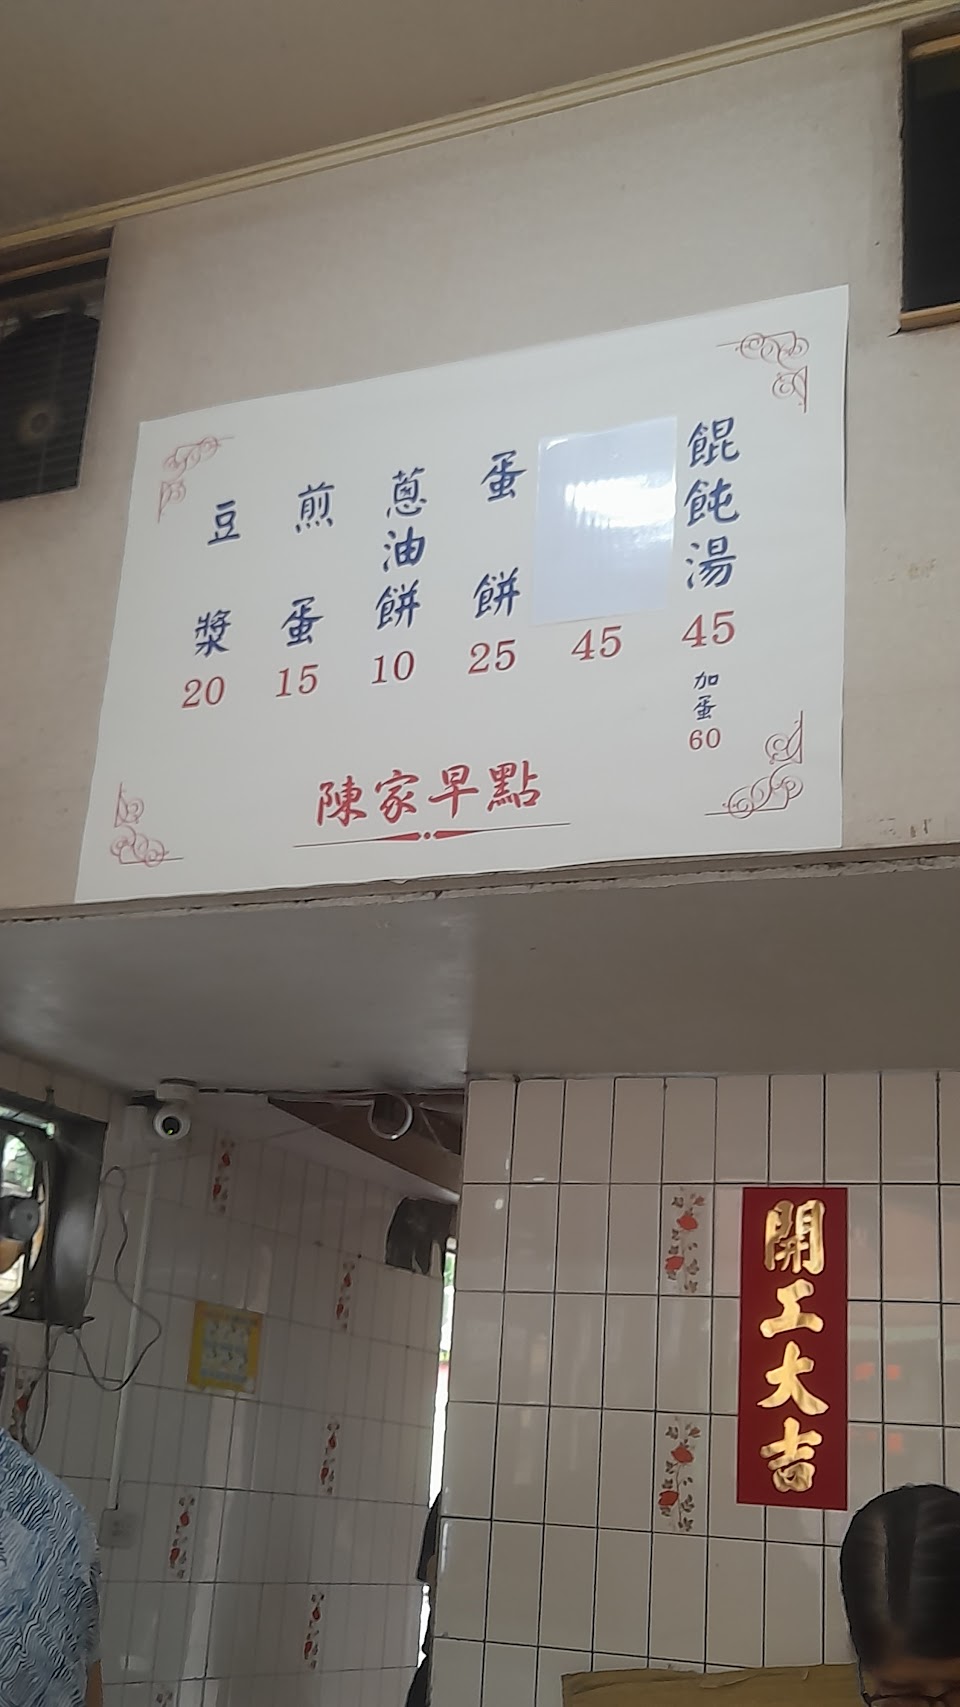 餛飩湯
45
加蛋
60
45
蛋餅
25
蔥油餅
10
煎蛋
15
豆漿
20
陳家早點
開工大吉